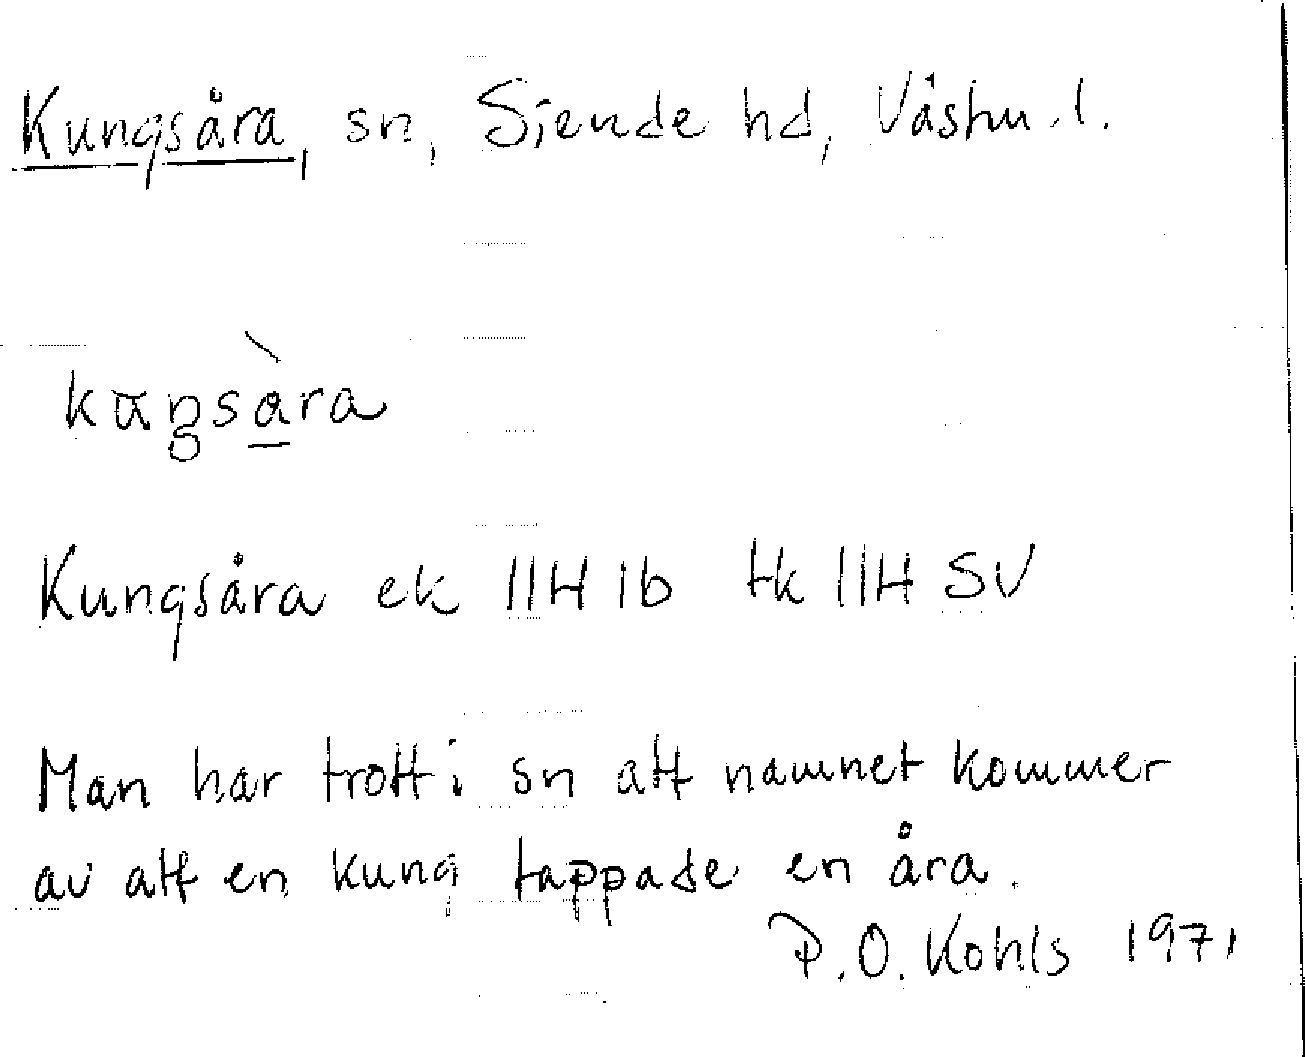 Kungsåra, sn, Siende hd, Västm.l.
Kungsåra ek 11H 1b tk 11H SV
Man har trott i sn att namnet kommer
av att en kung tappade en åra.
P.O. Kohls 1971